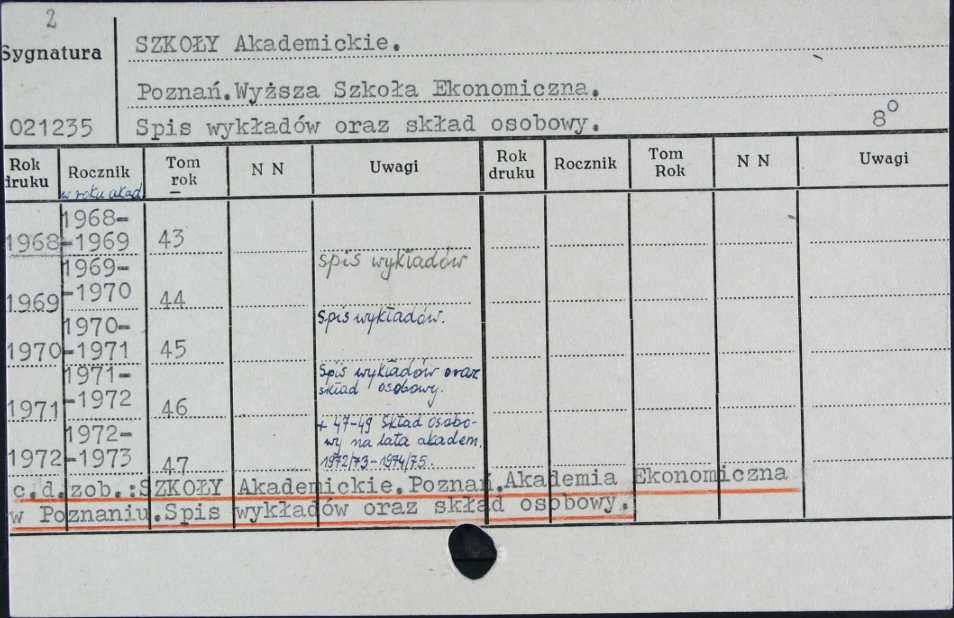 2
Sygnatura
SZKOŁY Akademickie.
Poznań.Wyższa Szkoła Ekonomiczna.
021235 Spis wykładów oraz skład osobowy. 8°
Rok druku Rocznik Tom rok N N Uwagi Rok druku Rocznik Tom Rok N N Uwagi
w roku akad.
1968-
1968 -1969 43
1969- spis wykładów
1969 -1970 44
1970- Spis wykładów.
1970 -1971 45
1971- Spis wykładów oraz
1971 -1972 46 skład osobowy.
1972- + 47-49 Skład osobo-
wy na lata akadem.
1972 -1973 47 1972/73-1974/75.
c.d.zob.:SZKOŁY Akademickie.Poznań.Akademia Ekonomiczna
w Poznaniu.Spis wykładów oraz skład osobowy.